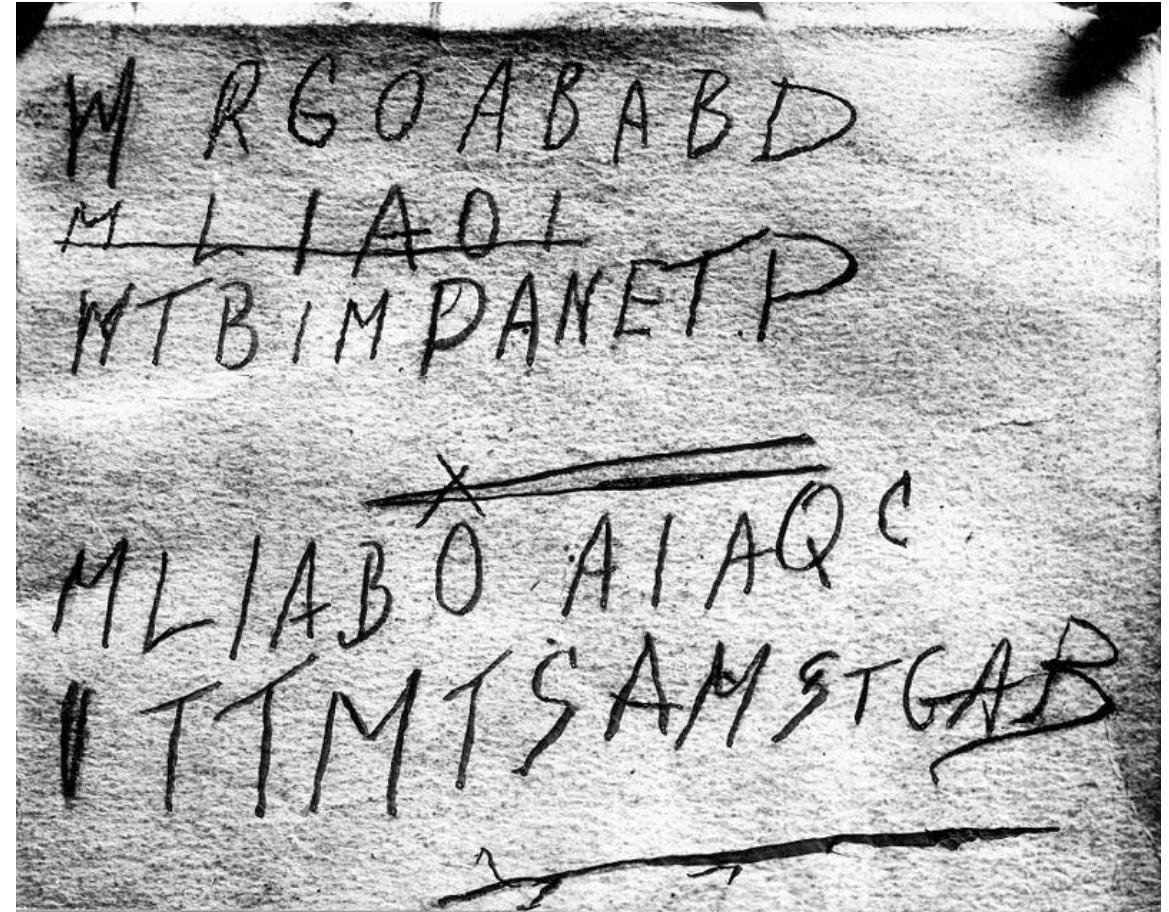 W RGOABABD
MLIAOI
WTBIMPANETP
x
MLIABO AIAQC
ITTMTSAMSTGAB